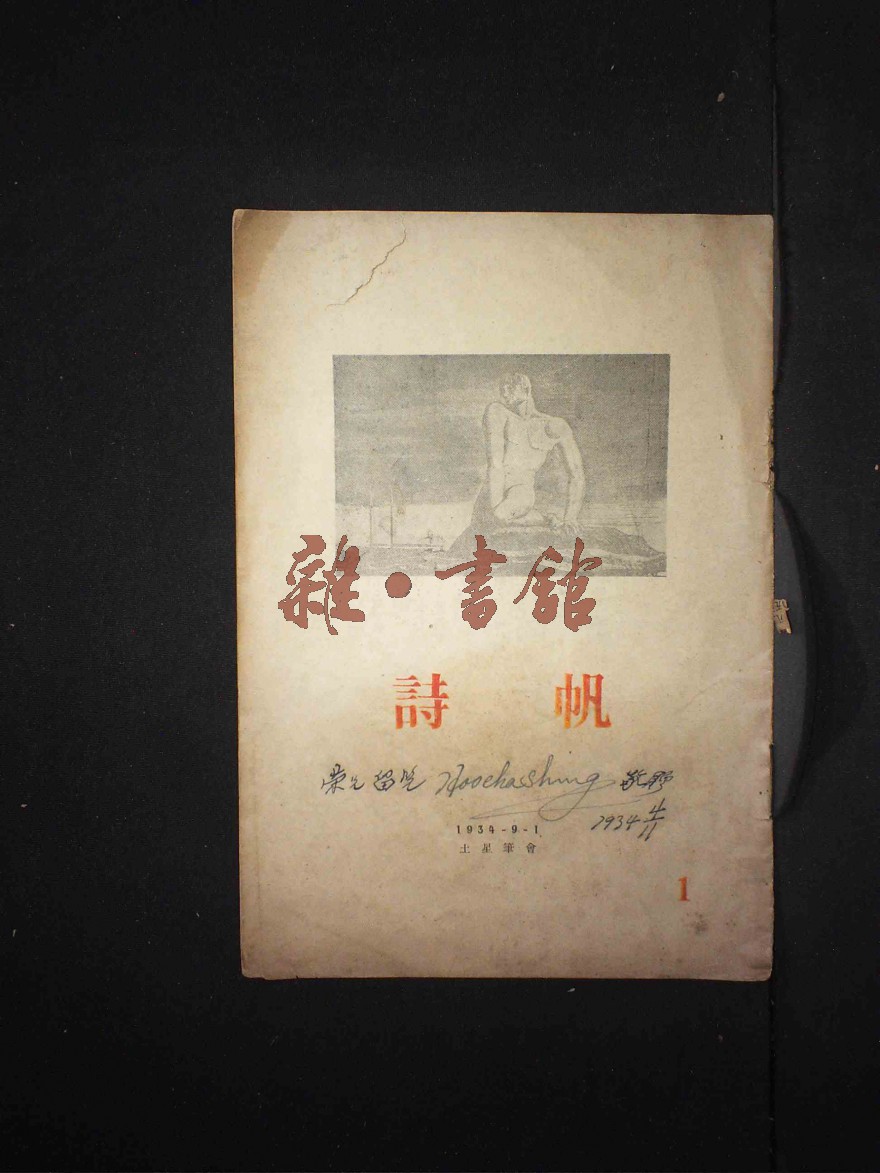 雜·書館
詩帆
榮先留览 Hoochashing 敬贈
1934 4/11
1934-9-1
土星筆會
1